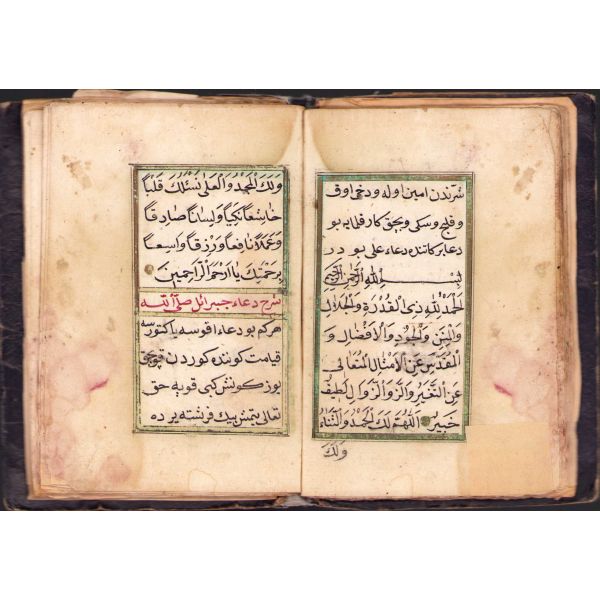 شرندن امين اوله ودخى اوق
وقلج وسكى وبچق كار قلميه بو
دعا بركاتنده دعاء على بو در
بسم الله الرحمن الرحيم
الحمد لله ذى القدرة والجلال
والمنن والجود والافضال و
المقدس عن الامثال المتعالى
عن التغير والزوال لطيف
خبير اللهم لك الحمد والثناء
ولك
ولك المجد والعلى نسئلك قلباً
خاشعاً نكياً ولساناً صادقاً
وعملاً نافعاً ورزقاً واسعاً
برحمتك يا ارحم الراحمين
شرح دعاء جبرائل صلى الله
هركم بو دعاء اقوسه ياكتورسه
قيامت كوننده كوردن قوپجق
يوز كونش كبى قويه حق
تعالى يتمش بيك فرشته يرده